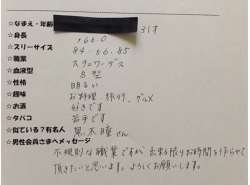 ☆なまえ・年齢 31才
☆身長 166.0
☆スリーサイズ 84-56.85
☆職業 スチュワーデス
☆血液型 B型
☆性格 明るい
☆趣味 お料理、旅行、グルメ
☆お酒 好きです
☆タバコ 苦手です
☆似ている?有名人 黒木瞳さん
☆男性会員さまへメッセージ
不規則な職業ですが、出来る限りお時間を作らせて
頂きたいと思います。よろしくお願いします。